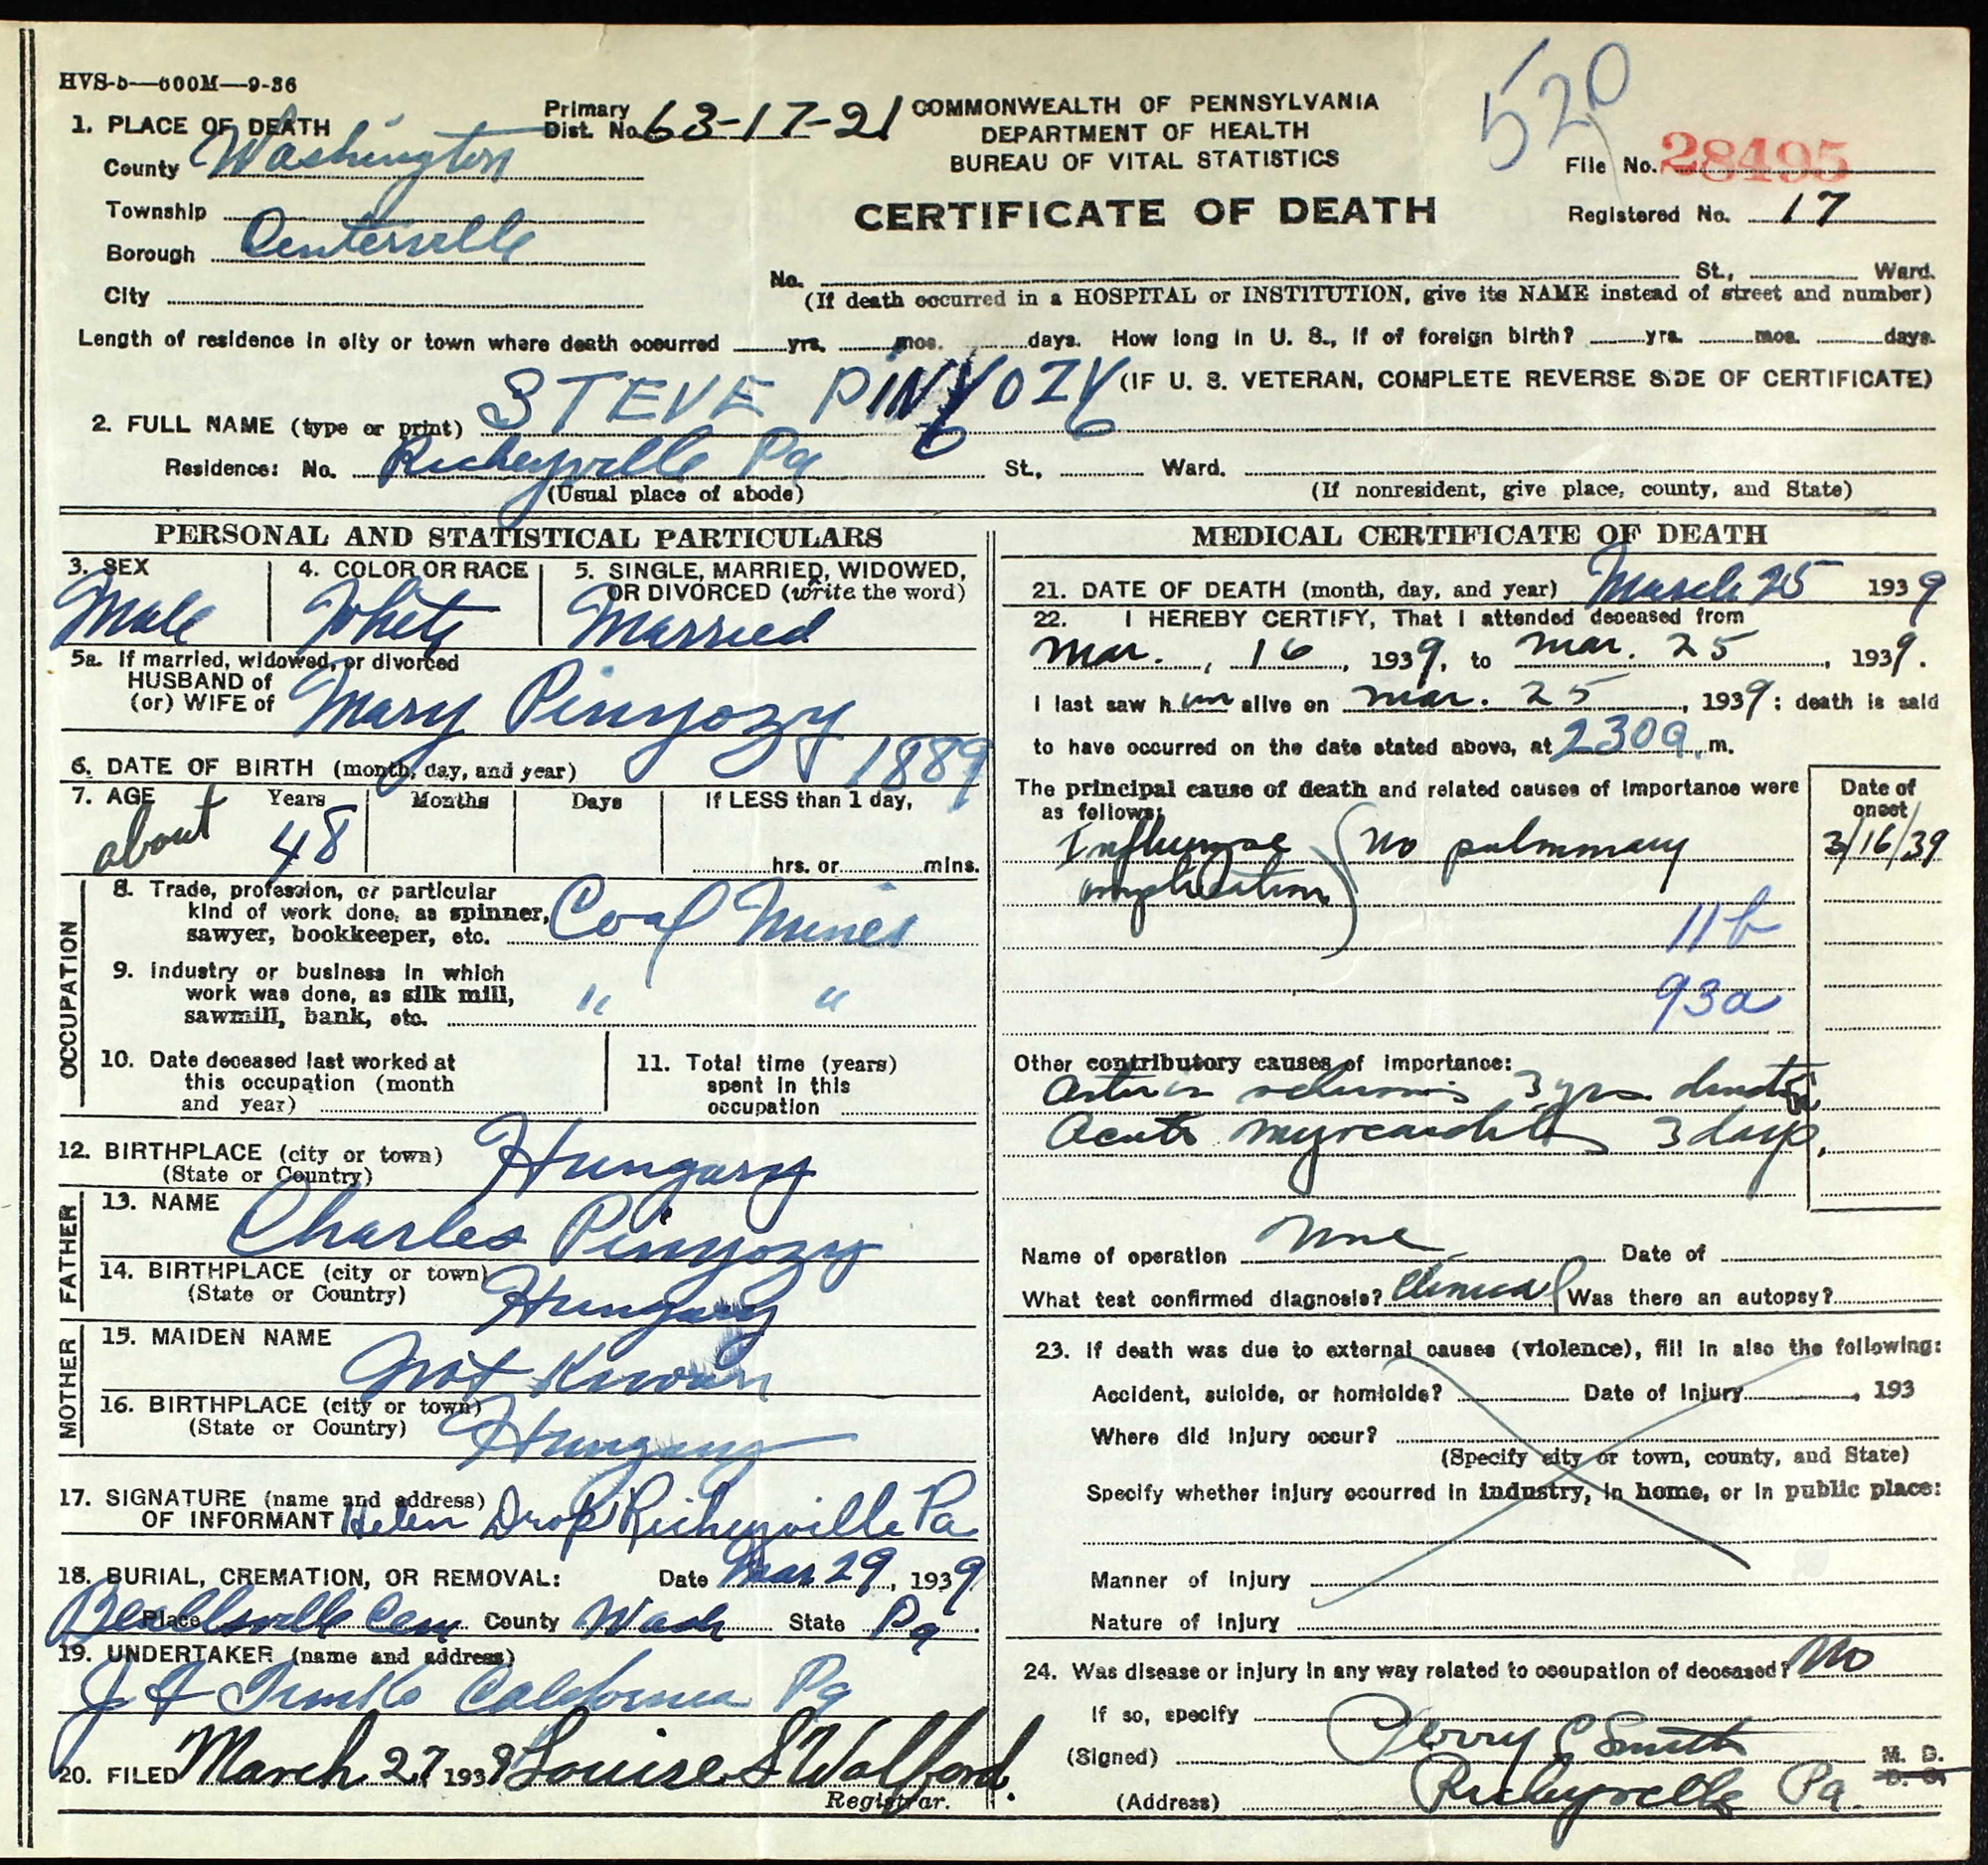 HVS-5—600M—9-36
520
1. PLACE OF DEATH
County Washington
Township
Borough Centerville
City
Primary Dist. No. 63-17-21
COMMONWEALTH OF PENNSYLVANIA
DEPARTMENT OF HEALTH
BUREAU OF VITAL STATISTICS
CERTIFICATE OF DEATH
File No. 28495
Registered No. 17
No. St., Ward.
(If death occurred in a HOSPITAL or INSTITUTION, give its NAME instead of street and number)
Length of residence in city or town where death occurred yrs. mos. days. How long in U. S., if of foreign birth? yrs. mos. days.
2. FULL NAME (type or print) STEVE PINYOZY (IF U. S. VETERAN, COMPLETE REVERSE SIDE OF CERTIFICATE)
Residence: No. Richeyville Pa St., Ward.
(Usual place of abode) (If nonresident, give place, county, and State)
PERSONAL AND STATISTICAL PARTICULARS
3. SEX Male
4. COLOR OR RACE White
5. SINGLE, MARRIED, WIDOWED, OR DIVORCED (write the word) Married
5a. If married, widowed, or divorced
HUSBAND of
(or) WIFE of Mary Pinyozy
6. DATE OF BIRTH (month, day, and year) 1889
7. AGE about Years 48 Months Days If LESS than 1 day,
hrs. or mins.
OCCUPATION
8. Trade, profession, or particular
kind of work done, as spinner,
sawyer, bookkeeper, etc. Coal Miner
9. Industry or business in which
work was done, as silk mill,
sawmill, bank, etc. " "
10. Date deceased last worked at
this occupation (month
and year)
11. Total time (years)
spent in this
occupation
12. BIRTHPLACE (city or town)
(State or Country) Hungary
FATHER
13. NAME Charles Pinyozy
14. BIRTHPLACE (city or town)
(State or Country) Hungary
MOTHER
15. MAIDEN NAME Not Known
16. BIRTHPLACE (city or town)
(State or Country) Hungary
17. SIGNATURE (name and address)
OF INFORMANT Helen Drop Richeyville Pa
18. BURIAL, CREMATION, OR REMOVAL: Date Mar 29, 1939
Place Beallsville Cem County Wash State Pa.
19. UNDERTAKER (name and address)
California Pa
20. FILED March 27 1939 Louise S Walford.
Registrar.
MEDICAL CERTIFICATE OF DEATH
21. DATE OF DEATH (month, day, and year) March 25 1939
22. I HEREBY CERTIFY, That I attended deceased from
Mar., 16, 1939, to Mar. 25, 1939.
I last saw him alive on Mar. 25, 1939; death is said
to have occurred on the date stated above, at 230a.m.
The principal cause of death and related causes of importance were
as follows:
Date of onset
Influenza (No pulmonary 3/16/39
complication)
11b
93a
Other contributory causes of importance:
3 yrs. duration
Acute myocarditis 3 days,
Name of operation None Date of
What test confirmed diagnosis? Clinical Was there an autopsy?
23. If death was due to external causes (violence), fill in also the following:
Accident, suicide, or homicide? Date of injury , 193
Where did injury occur?
(Specify city or town, county, and State)
Specify whether injury occurred in industry, in home, or in public place:
Manner of injury
Nature of injury
24. Was disease or injury in any way related to occupation of deceased? No
If so, specify
(Signed) Perry C Smith M. D.
D. O.
(Address) Richeyville Pa.